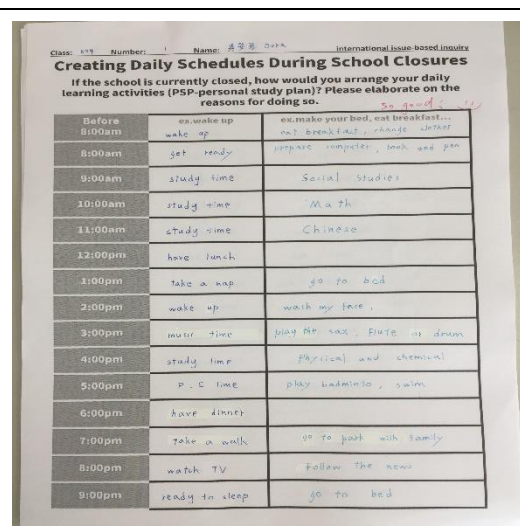 Class: Number: 1 Name: Dora International issue-based inquiry
Creating Daily Schedules During School Closures
If the school is currently closed, how would you arrange your daily
learning activities (PSP-personal study plan)? Please elaborate on the
reasons for doing so.
So good!
Before 8:00am ex.wake up wake up ex.make your bed, eat breakfast... eat breakfast, change clothes
8:00am get ready prepare computer, book and pen
9:00am study time Social Studies
10:00am study time Math
11:00am study time Chinese
12:00pm have lunch
1:00pm Take a nap go to bed
2:00pm wake up wash my face,
3:00pm music time play the sax, Flute or drum
4:00pm study time Physical and chemical
5:00pm P.E time play badminto, swim
6:00pm have dinner
7:00pm Take a walk go to park with family
8:00pm watch TV Follow the news
9:00pm ready to sleep go to bed